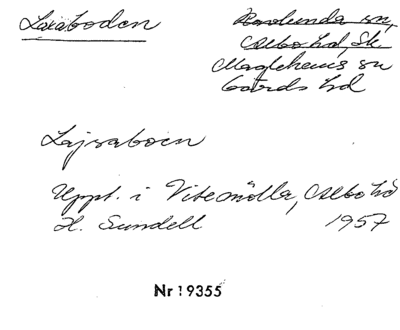 Laxaboden
Ravlunda sn,
Albo hd, Sk.
Maglehems sn
Gärds hd
Lajsaboen
Uppt. i Vitemölla, Albo hd
H. Sundell 1957
Nr 19355